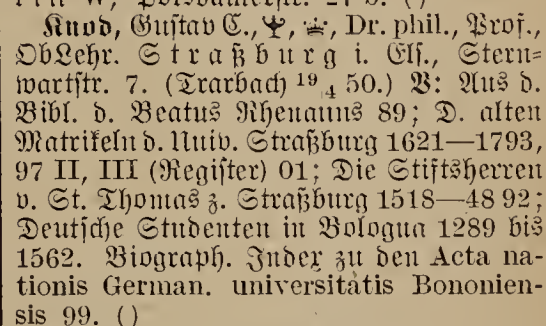 Knod, Gustav C., Dr. phil., Prof.,
ObLehr. Straßburg i. Els., Stern=
wartstr. 7. (Trarbach 19/4 50.) V: Aus d.
Bibl. d. Beatus Rhenanus 89; D. alten
Matrikeln d. Univ. Straßburg 1621—1793,
97 II, III (Register) 01; Die Stiftsherren
v. St. Thomas z. Straßburg 1518—48 92;
Deutsche Studenten in Bologna 1289 bis
1562. Biograph. Index zu den Acta na-
tionis German. universitatis Bononien-
sis 99. ()